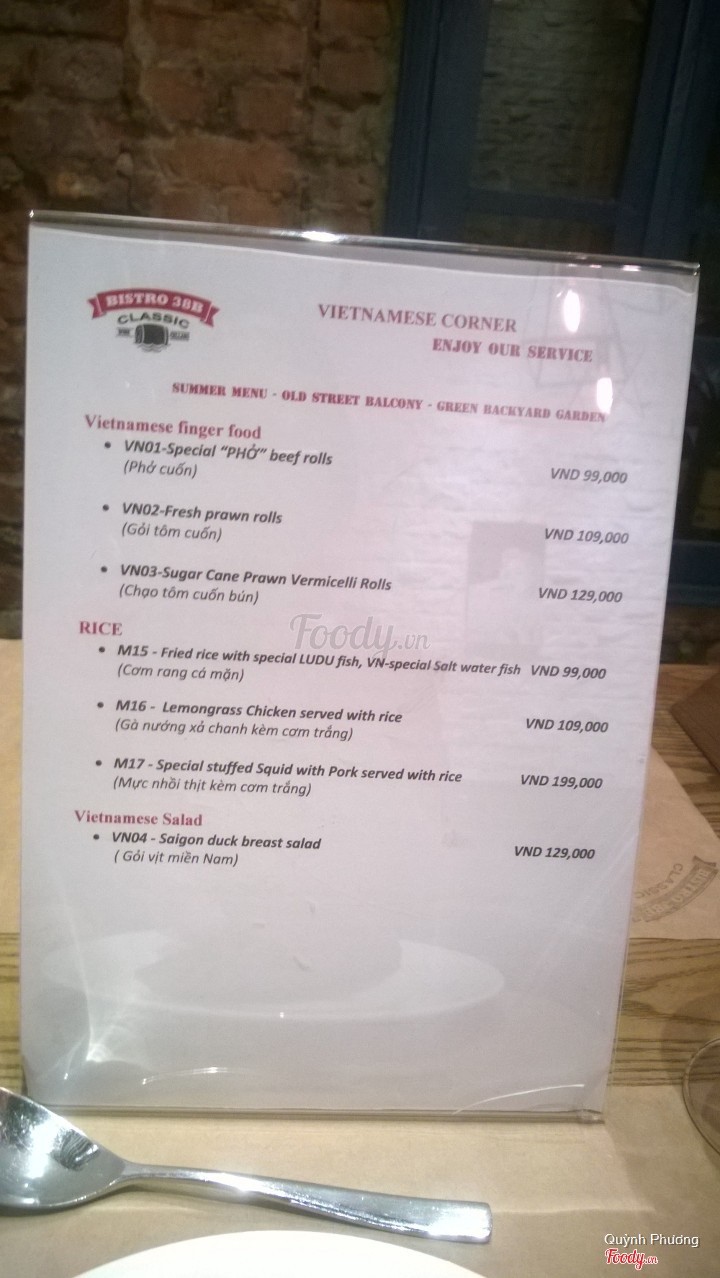 BISTRO 38B
CLASSIC
VIETNAMESE CORNER
ENJOY OUR SERVICE
SUMMER MENU - OLD STREET BALCONY - GREEN BACKYARD GARDEN
Vietnamese finger food
• VN01-Special “PHỞ” beef rolls
(Phở cuốn) VND 99,000
• VN02-Fresh prawn rolls
(Gỏi tôm cuốn) VND 109,000
• VN03-Sugar Cane Prawn Vermicelli Rolls
(Chạo tôm cuốn bún) VND 129,000
Foody.vn
RICE
• M15 - Fried rice with special LUDU fish, VN-special Salt water fish VND 99,000
(Cơm rang cá mặn)
• M16 - Lemongrass Chicken served with rice VND 109,000
(Gà nướng xả chanh kèm cơm trắng)
• M17 - Special stuffed Squid with Pork served with rice VND 199,000
(Mực nhồi thịt kèm cơm trắng)
Vietnamese Salad
• VN04 - Saigon duck breast salad VND 129,000
( Gỏi vịt miền Nam)
CLASSIC
Quỳnh Phương
Foody.vn